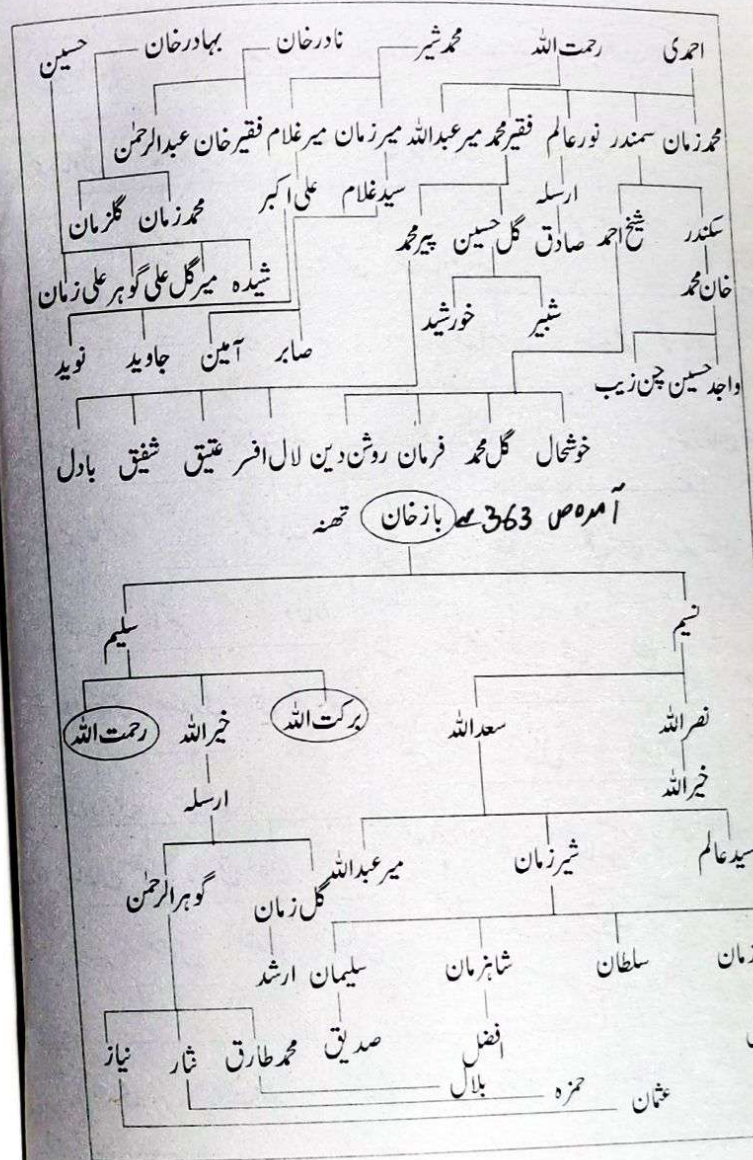 احمدی رحمت اللہ محمد شیر نادر خان بہادر خان حسین
محمد زمان سمندر نور عالم فقیر محمد میر عبداللہ میر زمان میر غلام فقیر خان عبدالرحمٰن
ارسلہ سید غلام علی اکبر محمد زمان گلزمان
سکندر شیخ احمد صادق گل حسین پیر محمد
خان محمد شیدہ میر گل علی گوہر علی زمان
شبیر خورشید
صابر آمین جاوید نوید
واجد حسین چن زیب
خوشحال گل محمد فرمان روشن دین لال افسر عتیق شفیق بادل
آمدہ ص 363 سے باز خان تھنہ
نسیم سلیم
نصر اللہ سعد اللہ برکت اللہ خیر اللہ رحمت اللہ
خیر اللہ ارسلہ
سید عالم شیر زمان میر عبداللہ گل زمان گوہر الرحمٰن
زمان سلطان شاہزمان سلیمان ارشد
افضل صدیق محمد طارق نثار نیاز
بلال
حمزہ
عثمان